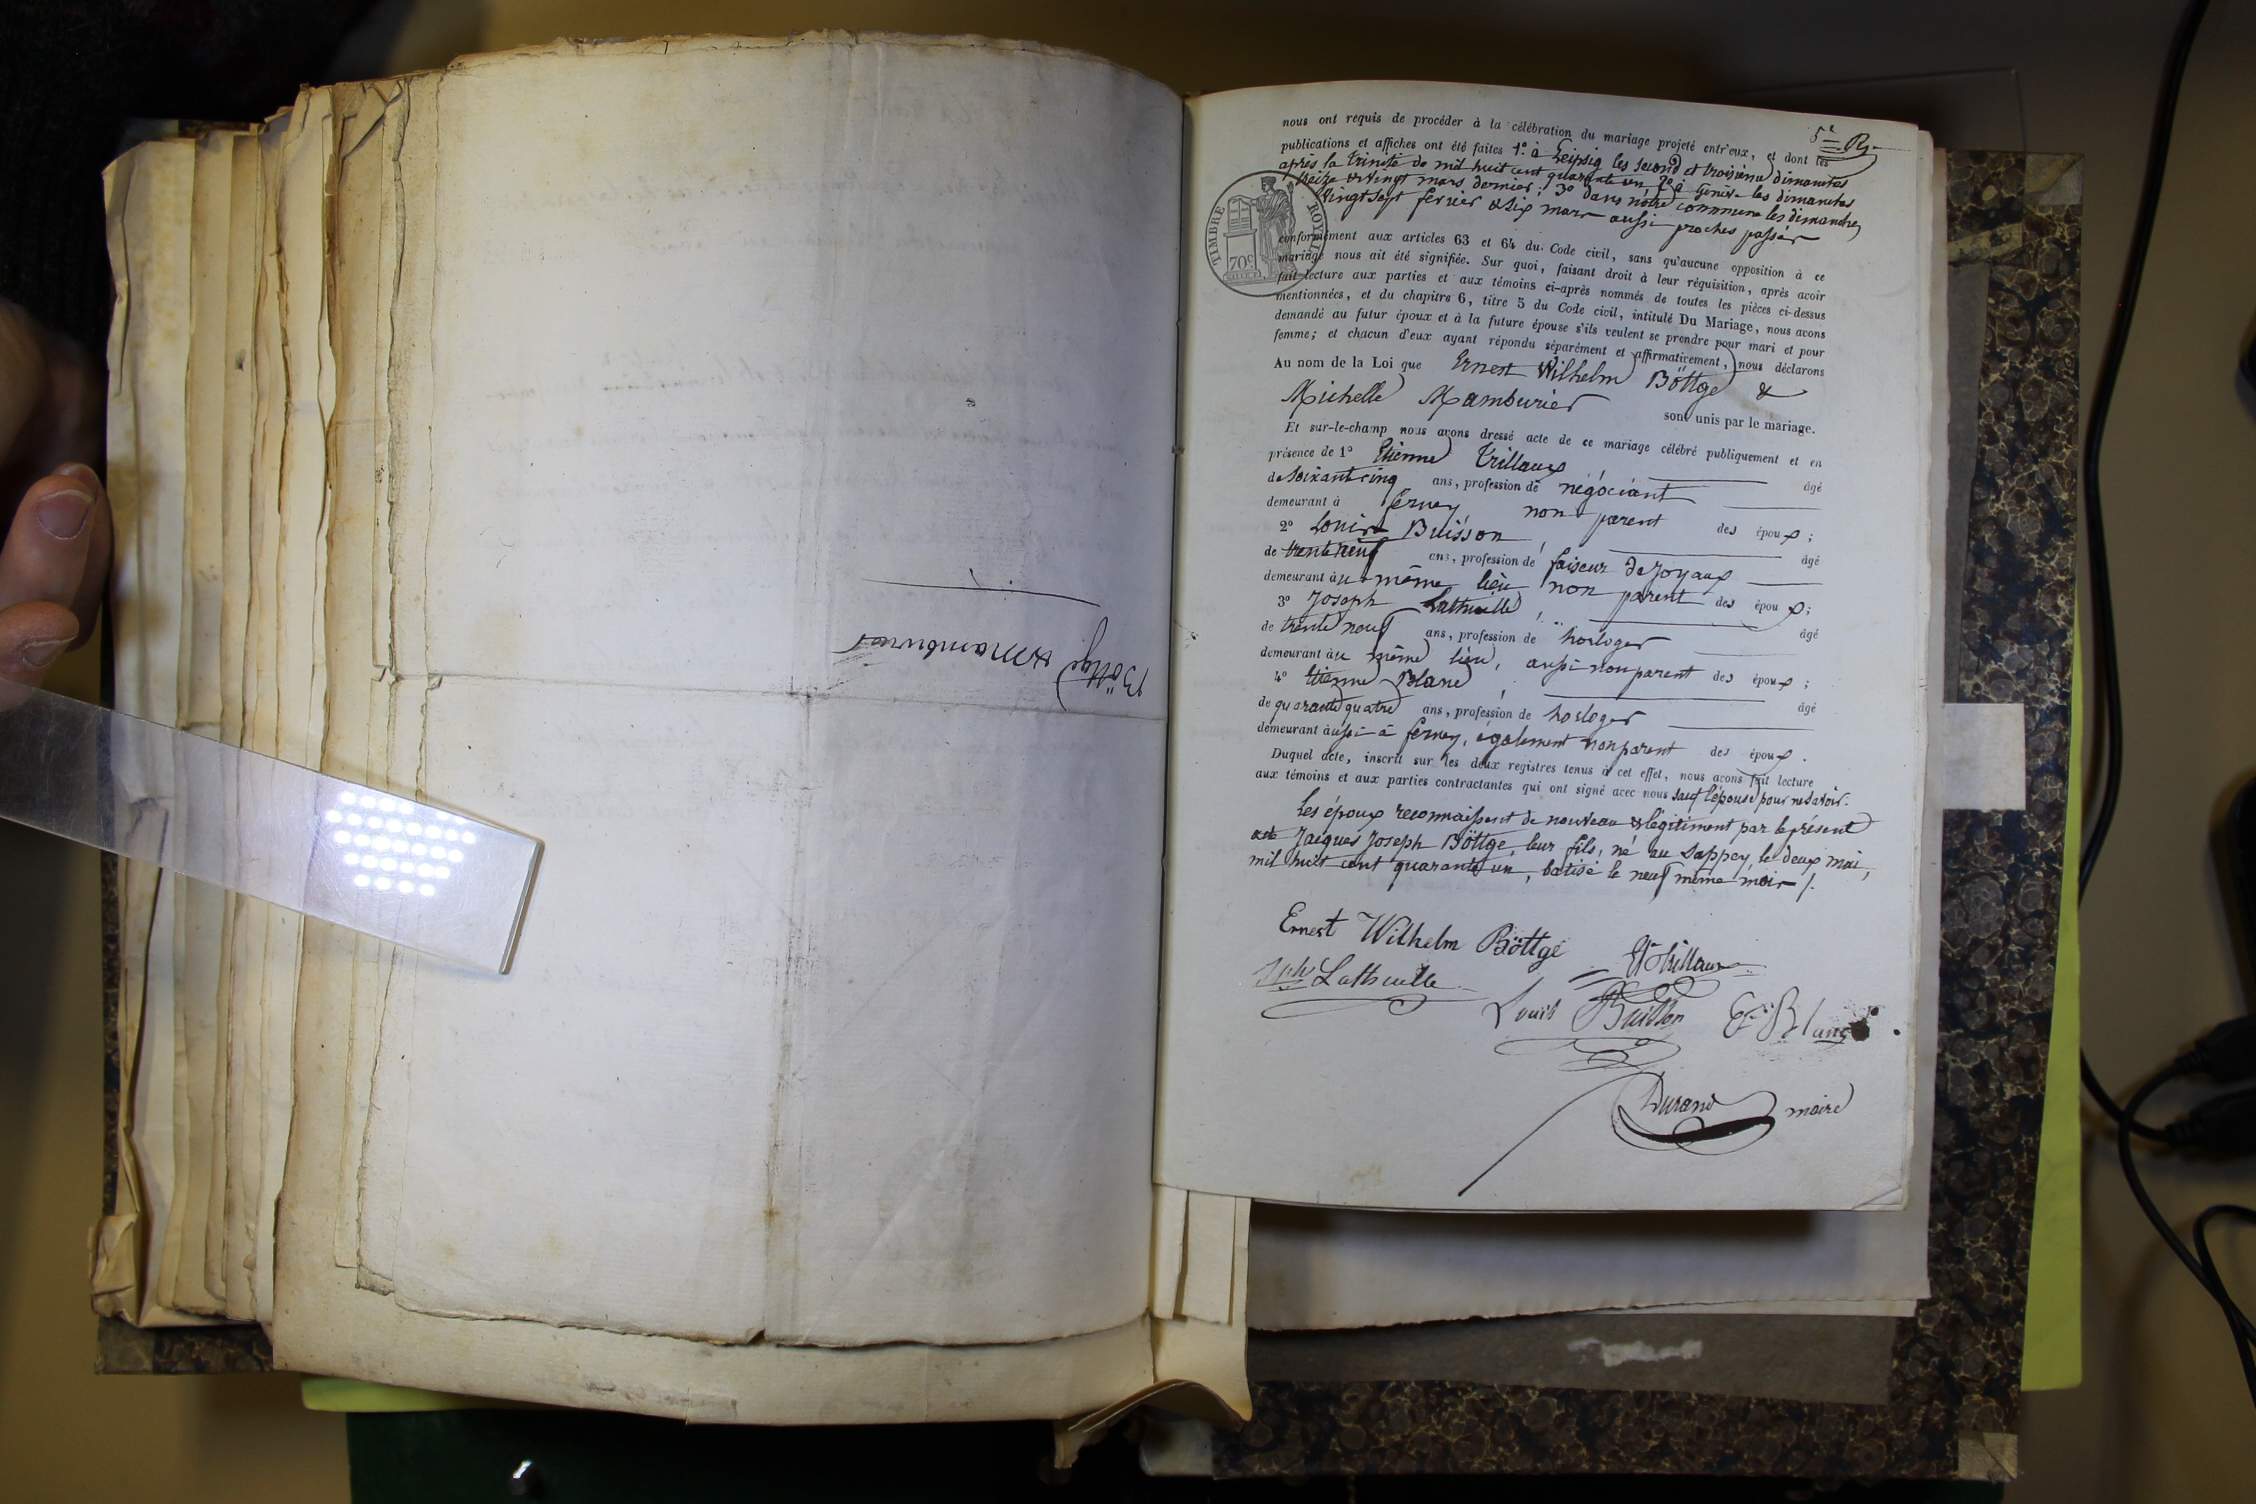 Böttge & Mamburier
5e Ry.
nous ont requis de procéder à la célébration du mariage projeté entr'eux, et dont les
publications et affiches ont été faites 1º à Leipsig les second et troisieme dimanches
après la trinité de mil huit cent quarante un, 2º à Genève les dimanches
treize & vingt mars dernier; 3º dans notre commune les dimanches
vingt sept fevrier & six mars aussi proches passés
conformément aux articles 63 et 64 du Code civil, sans qu'aucune opposition à ce
mariage nous ait été signifiée. Sur quoi, faisant droit à leur réquisition, après avoir
fait lecture aux parties et aux témoins ci-après nommés de toutes les pièces ci-dessus
mentionnées, et du chapitre 6, titre 5 du Code civil, intitulé Du Mariage, nous avons
demandé au futur époux et à la future épouse s'ils veulent se prendre pour mari et pour
femme; et chacun d'eux ayant répondu séparément et affirmativement, nous déclarons
Au nom de la Loi que Ernest Wilhelm Böttge &
Michelle Mamburier sont unis par le mariage.
Et sur-le-champ nous avons dressé acte de ce mariage célébré publiquement et en
présence de 1º Etienne Trillaux âgé
de soixant cinq ans, profession de négociant
demeurant à ferney non parent des époux;
2º Louis Buisson, âgé
de trente neuf ans, profession de faiseur de joyaux
demeurant au même lieu non parent des époux;
3º Joseph Lathuille, âgé
de trente neuf ans, profession de horloger
demeurant au même lieu, aussi non parent des époux;
4º Etienne Blanc, âgé
de quarante quatre ans, profession de horloger
demeurant aussi à ferney, également non parent des époux.
Duquel acte, inscrit sur les deux registres tenus à cet effet, nous avons fait lecture
aux témoins et aux parties contractantes qui ont signé avec nous sauf l'épouse pour ne savoir.
Les époux reconnaissent de nouveau & légitiment par le présent
acte Jaques Joseph Böttge, leur fils, né au Sappey le deux mai,
mil huit cent quarante un, batisé le neuf même mois /.
TIMBRE ROYAL
70c
Ernest Wilhelm Böttge
Ete Trillaux
Jph Lathuille
Louis Buisson
Ete Blanc
Durand maire